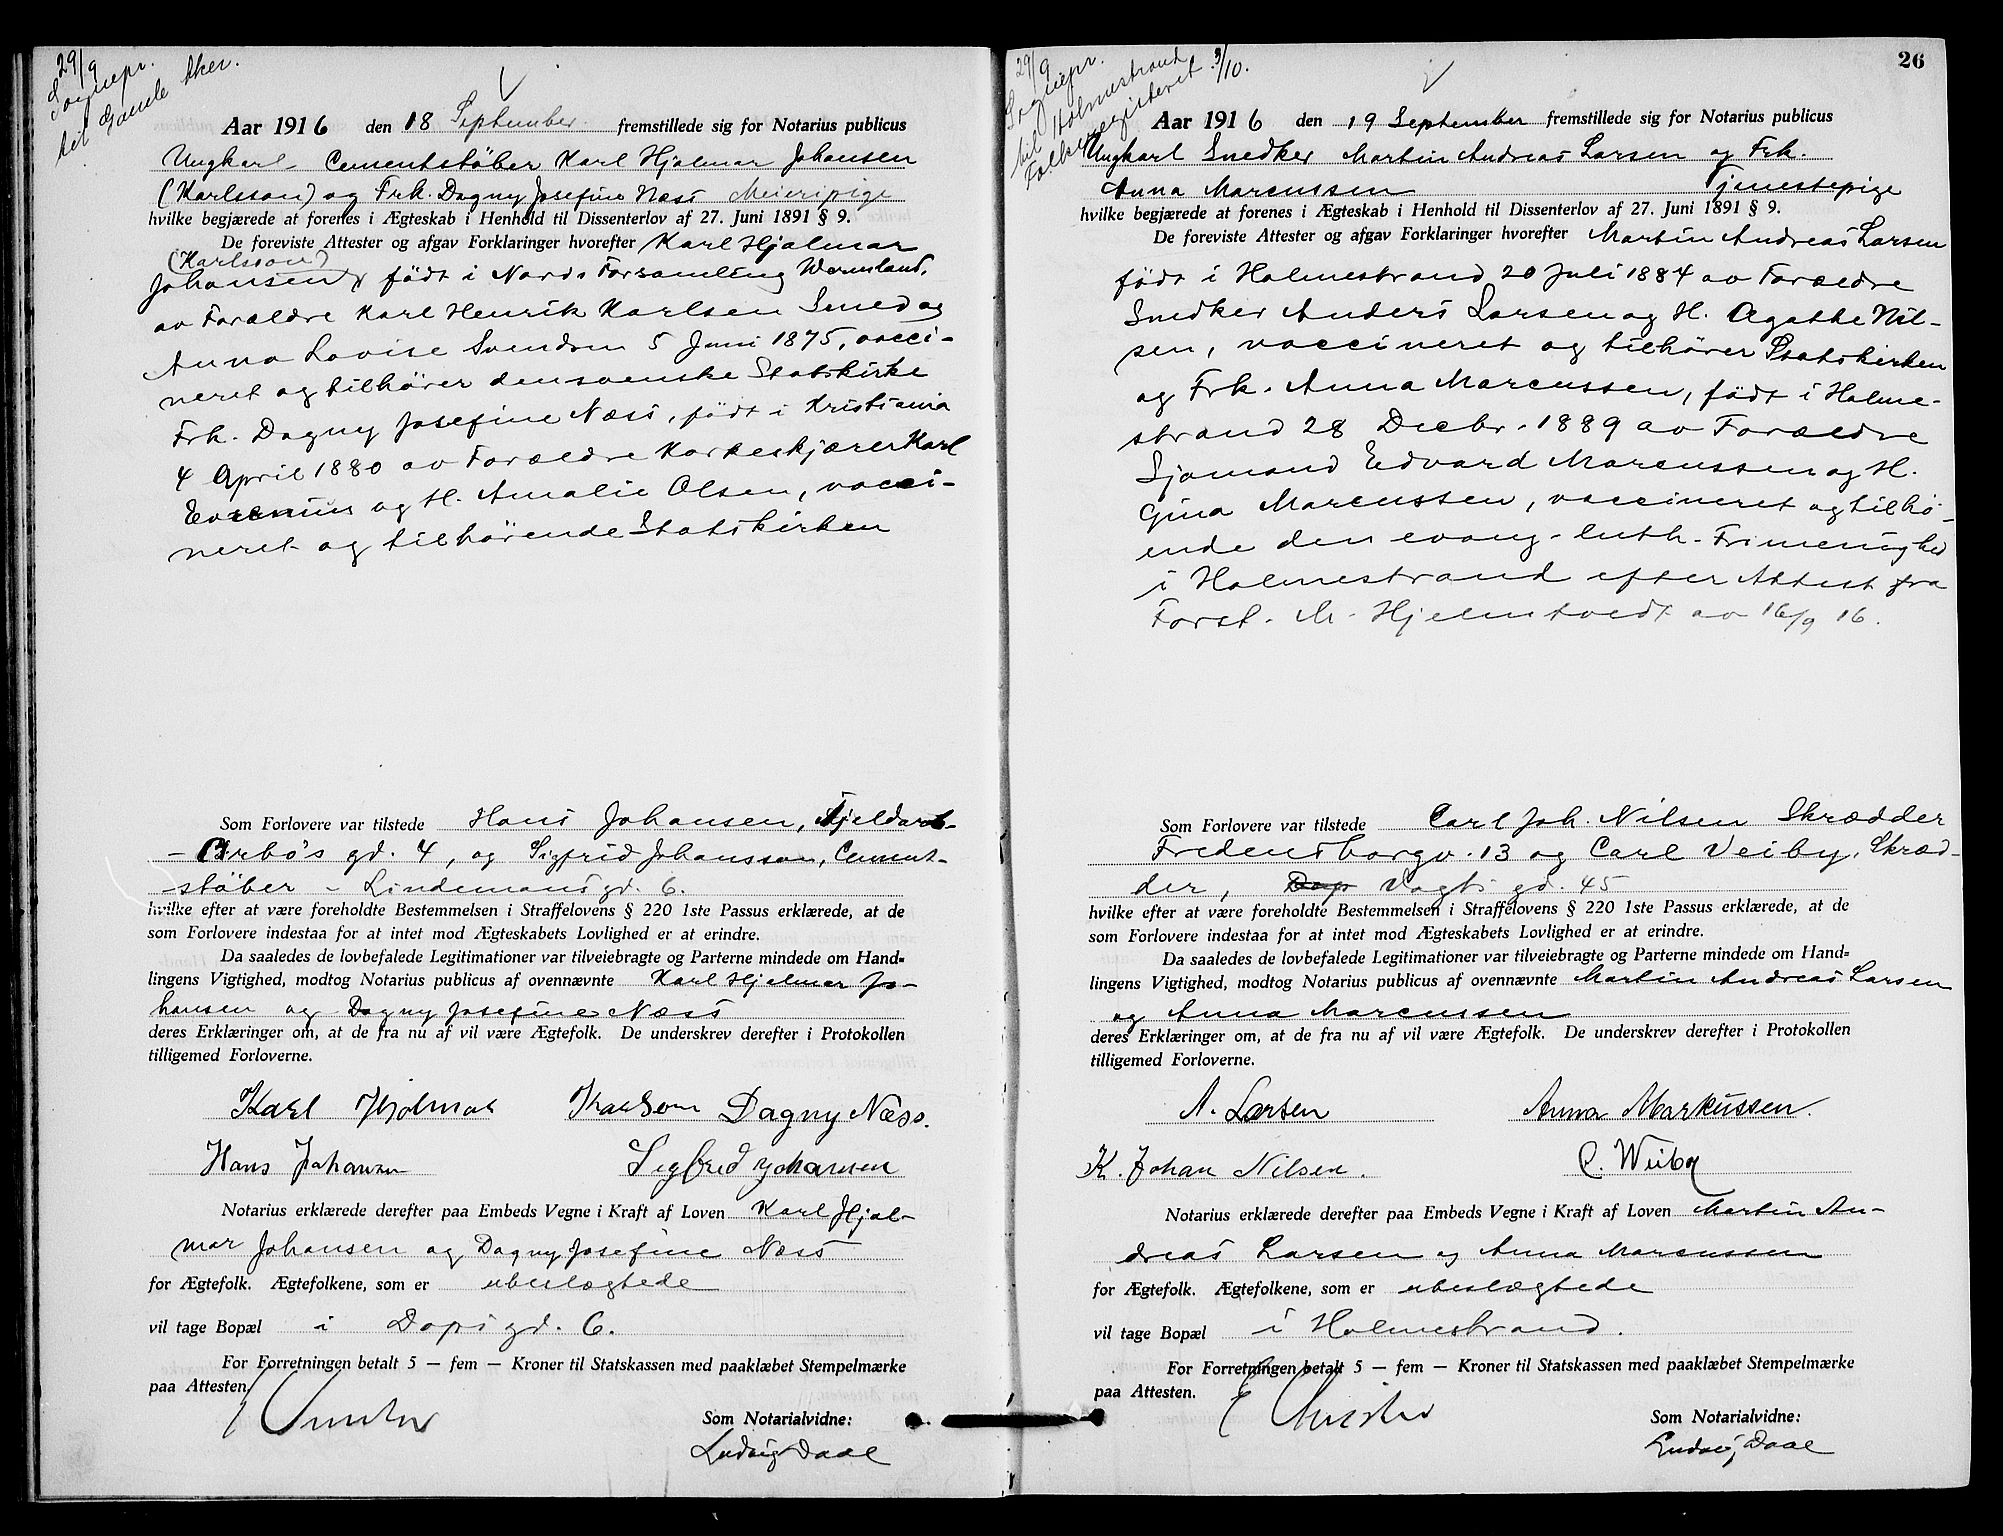 29/9
Sognepr.
til Gamle Aker.
Aar 1916 den 18 September fremstillede sig for Notarius publicus
Ungkarl Cementstöber Karl Hjalmar Johansen
(Karlsson) og Frk. Dagny Josefine Næss Meieripige
hvilke begjærede at forenes i Ægteskab i Henhold til Dissenterlov af 27. Juni 1891 § 9.
De foreviste Attester og afgav Forklaringer hvorefter Karl Hjalmar
(Karlsson)
Johansen, født i Nords Forsamling Wermland,
av Forældre Karl Henrik Karlsen Smed og
Anna Lovise Svendsen 5 Juni 1875, vacci-
neret og tilhører den svenske Statskirke
Frk. Dagny Josefine Næss, født i Kristiania
4 April 1880 av Forældre Korkeskjærer Karl
Evenius og H. Amalie Olsen, vacci-
neret og tilhørende Statskirken
Som Forlovere var tilstede Hans Johansen, Fjeldarb-
- Arbos gd. 4, og Sigfrid Johansson, Cement-
støber - Lindemans gd. 6.
hvilke efter at være foreholdte Bestemmelsen i Straffelovens § 220 1ste Passus erklærede, at de
som Forlovere indestaa for at intet mod Ægteskabets Lovlighed er at erindre.
Da saaledes de lovbefalede Legitimationer var tilveiebragte og Parterne mindede om Hand-
lingens Vigtighed, modtog Notarius publicus af ovennævnte Karl Hjalmar Jo-
hansen og Dagny Josefine Næss
deres Erklæringer om, at de fra nu af vil være Ægtefolk. De underskrev derefter i Protokollen
tilligemed Forloverne.
Karl Hjalmar Karlsson Dagny Næss.
Hans Johansen Sigfred Johansen
Notarius erklærede derefter paa Embeds Vegne i Kraft af Loven Karl Hjal-
mar Johansen og Dagny Josefine Næss
for Ægtefolk. Ægtefolkene, som er ubeslægtede
vil tage Bopæl i Dops gd. 6.
For Forretningen betalt 5 — fem — Kroner til Statskassen med paaklæbet Stempelmærke
paa Attesten.
Som Notarialvidne:
Ludvig Daae
26
29/9
Sognepr.
til Holmestrand
Folkeregisteret 3/10.
Aar 1916 den 19 September fremstillede sig for Notarius publicus
Ungkarl Snedker Martin Andreas Larsen og Frk.
Anna Marcussen Tjenestepige
hvilke begjærede at forenes i Ægteskab i Henhold til Dissenterlov af 27. Juni 1891 § 9.
De foreviste Attester og afgav Forklaringer hvorefter Martin Andreas Larsen
født i Holmestrand 20 Juli 1884 av Forældre
Snedker Anders Larsen og H. Agathe Nil-
sen, vaccineret og tilhører Statskirken
og Frk. Anna Marcussen, født i Holme-
strand 28 Decbr. 1889 av Forældre
Sjømand Edvard Marcussen og H.
Gina Marcussen, vaccineret og tilhø-
ende den evang-luth. Frimenighed
i Holmestrand efter Attest fra
Forst. M. Hjelmtvedt av 16/9 16.
Som Forlovere var tilstede Carl Joh. Nilsen Skrædder
Fredensborgv. 13 og Carl Veiby, Skræd-
der, Vogts gd. 45
hvilke efter at være foreholdte Bestemmelsen i Straffelovens § 220 1ste Passus erklærede, at de
som Forlovere indestaa for at intet mod Ægteskabets Lovlighed er at erindre.
Da saaledes de lovbefalede Legitimationer var tilveiebragte og Parterne mindede om Hand-
lingens Vigtighed, modtog Notarius publicus af ovennævnte Martin Andreas Larsen
og Anna Marcussen
deres Erklæringer om, at de fra nu af vil være Ægtefolk. De underskrev derefter i Protokollen
tilligemed Forloverne.
A. Larsen Anna Markussen.
K. Johan Nilsen. C. Weiby
Notarius erklærede derefter paa Embeds Vegne i Kraft af Loven Martin An-
dreas Larsen og Anna Marcussen
for Ægtefolk. Ægtefolkene, som er ubeslægtede
vil tage Bopæl i Holmestrand.
For Forretningen betalt 5 — fem — Kroner til Statskassen med paaklæbet Stempelmærke
paa Attesten.
Som Notarialvidne:
Ludvig Daae